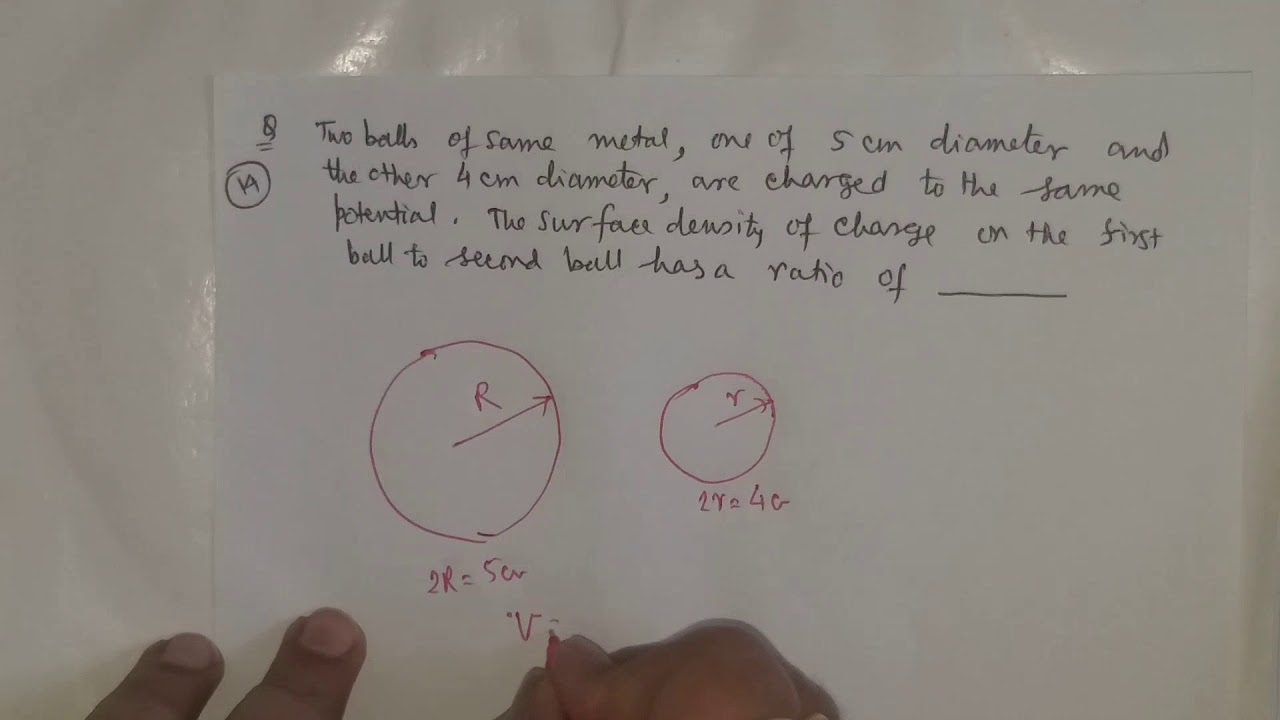 Q Two balls of same metal, one of 5 cm diameter and
the other 4 cm diameter, are charged to the same
potential. The surface density of charge on the first
ball to second ball has a ratio of ______
R
r
2r = 4c
2R = 5cm
V =